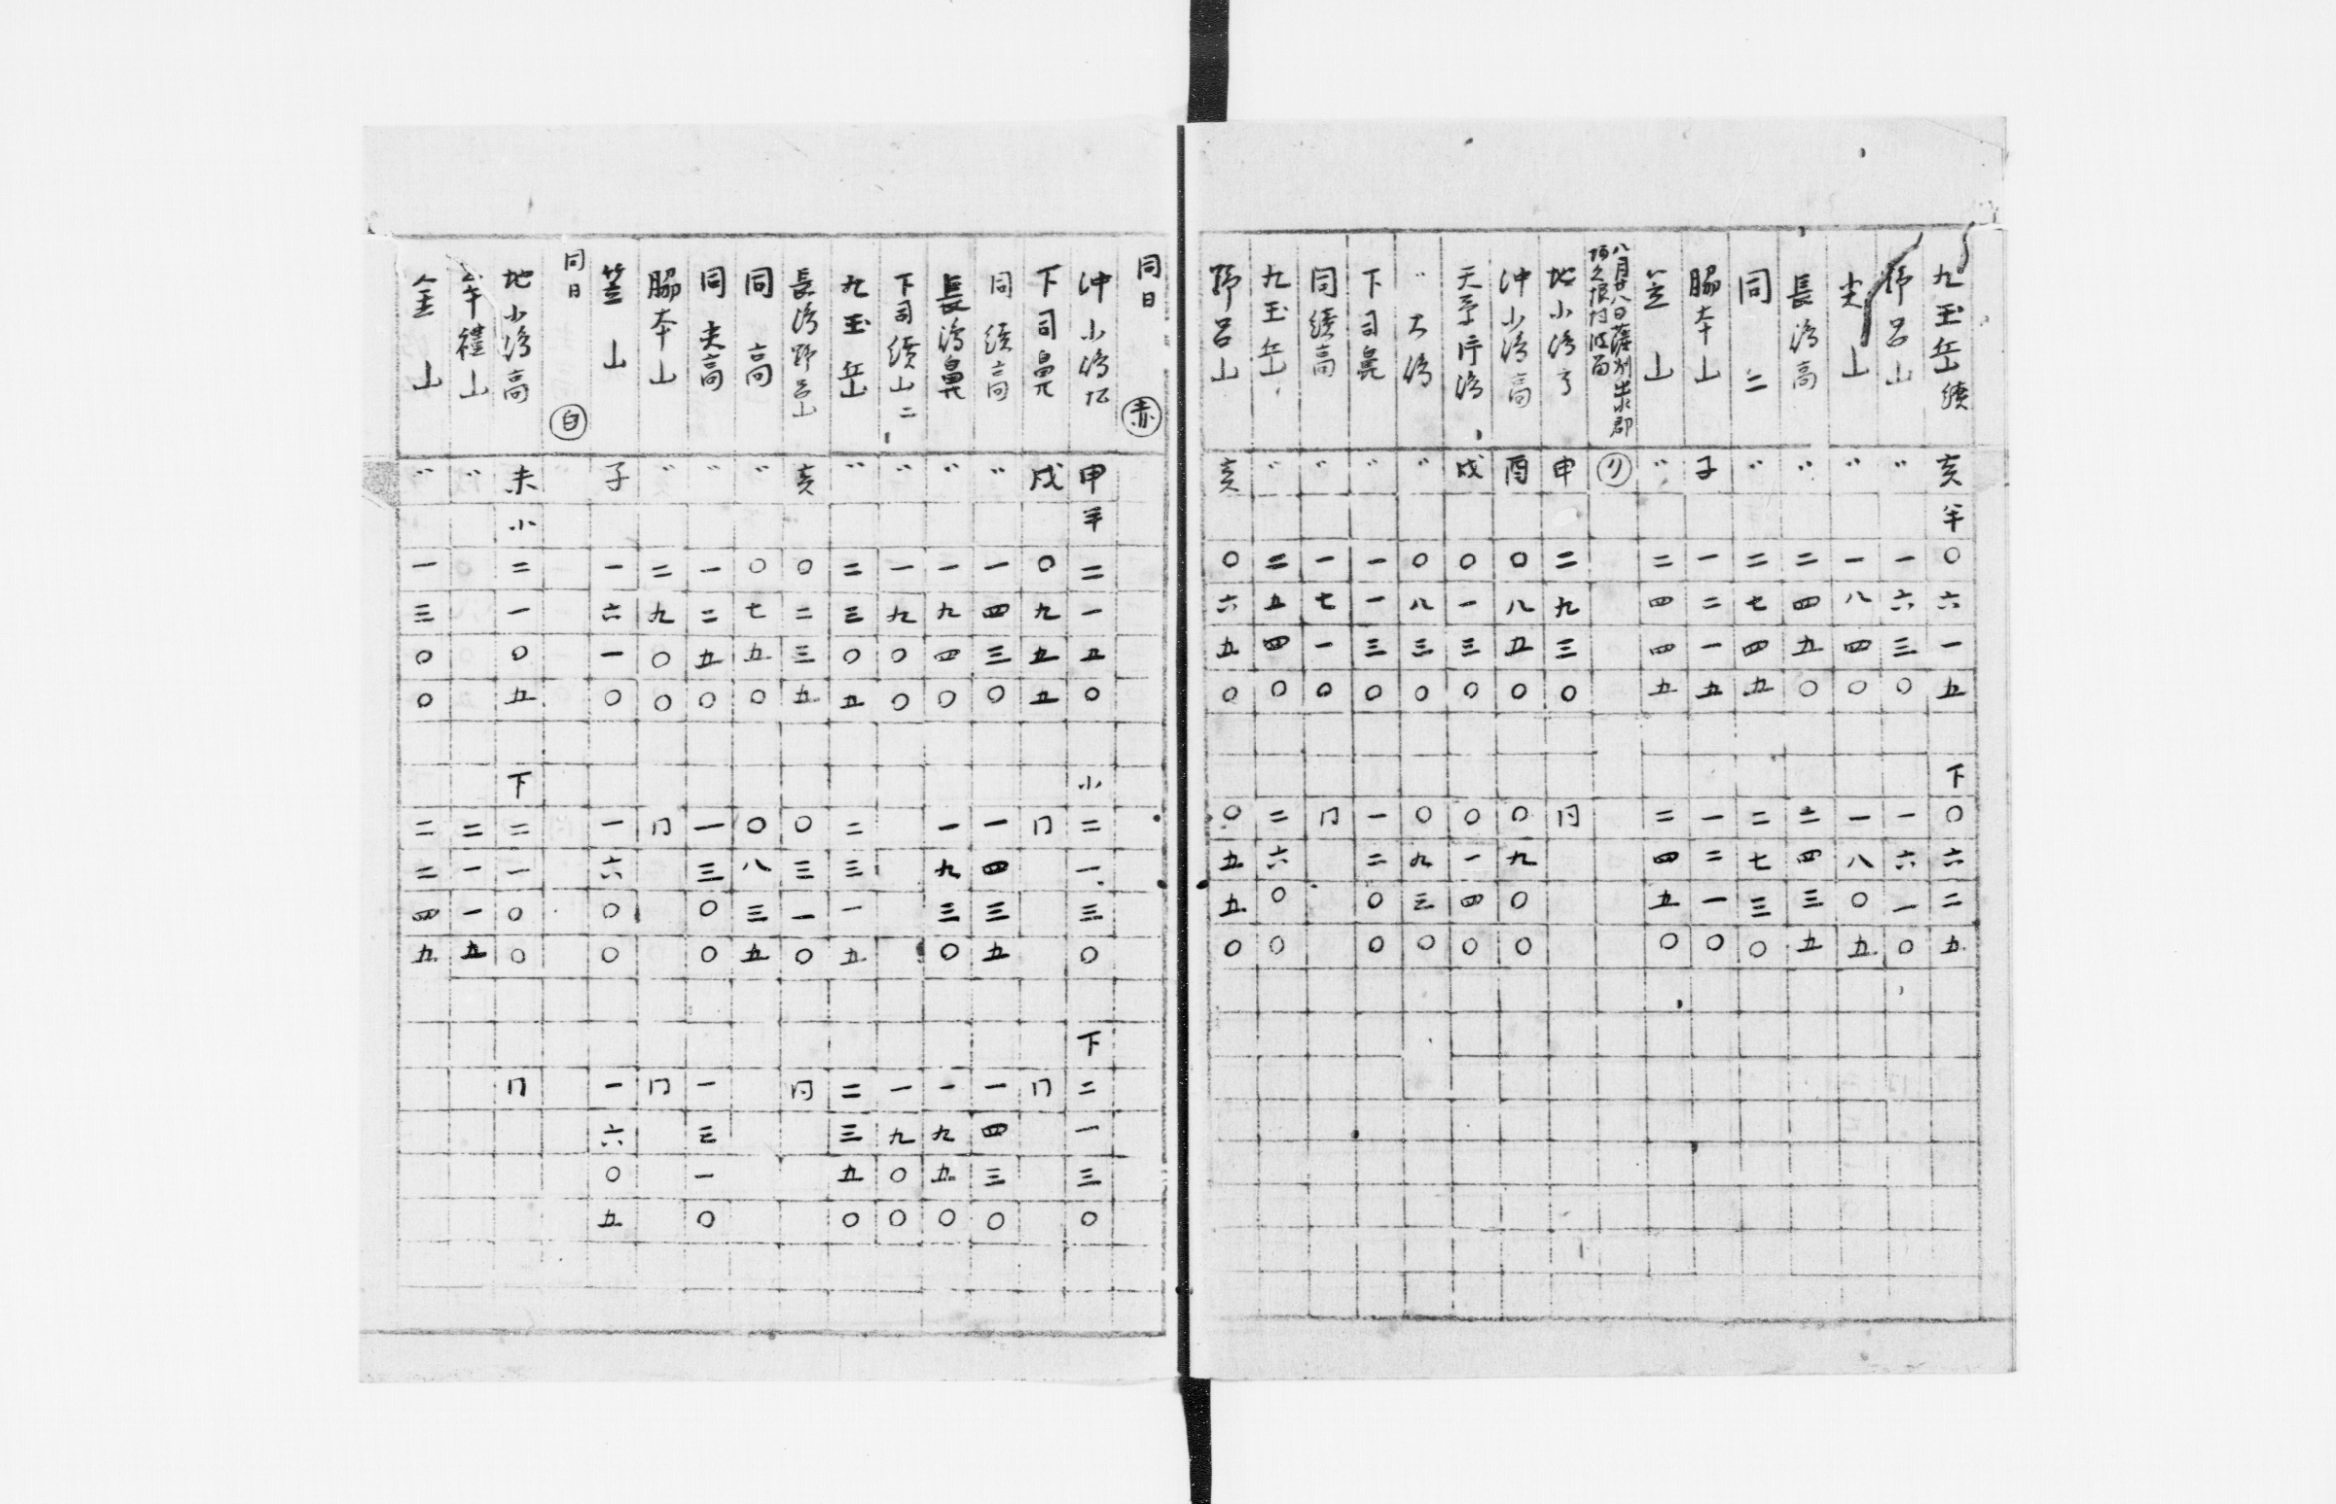 九玉岳續 亥半〇六一五 下〇六二五
野呂山 〃一六三〇 一六一〇
尖山 〃一八四〇 一八〇五
長渻高 〃二四五〇 二四三五
同二 〃二七四五 二七三〇
脇本山 子一二一五 一二一〇
笠山 〃二四四五 二四五〇
八月廿八日薩州出水郡
阿久根村波留 (リ)
地小渻亨 申二九三〇 同
沖小渻高 酉〇八五〇 〇九〇〇
天草片渻 戌〇一三〇 〇一四〇
〃大渻 〃〇八三〇 〇九三〇
下司鼻 〃一一三〇 一二〇〇
同續高 〃一七一〇 同
九玉岳 〃二五四〇 二六〇〇
野呂山 亥〇六五〇 〇五五〇
同日 (赤)
沖小渻 申半二一五〇 小二一三〇 下二一三〇
下司鼻 戌〇九五五 同 同
同續高 〃一四三〇 一四三五 一四三〇
長渻鼻 〃一九四〇 一九三〇 一九五〇
下司續山二 〃一九〇〇 一九〇〇
九玉岳 〃二三〇五 二三一五 二三五〇
長渻野呂山 亥〇二三五 〇三一〇 同
同高 〃〇七五〇 〇八三五
同夫高 〃一二五〇 一三〇〇 一三一〇
脇本山 〃二九〇〇 同 同
笠山 子一六一〇 一六〇〇 一六〇五
同日 (白)
地小渻高 未小二一〇五 下二一〇〇 同
牟禮山 〃 二一一五
金山 〃一三〇〇 二二四五